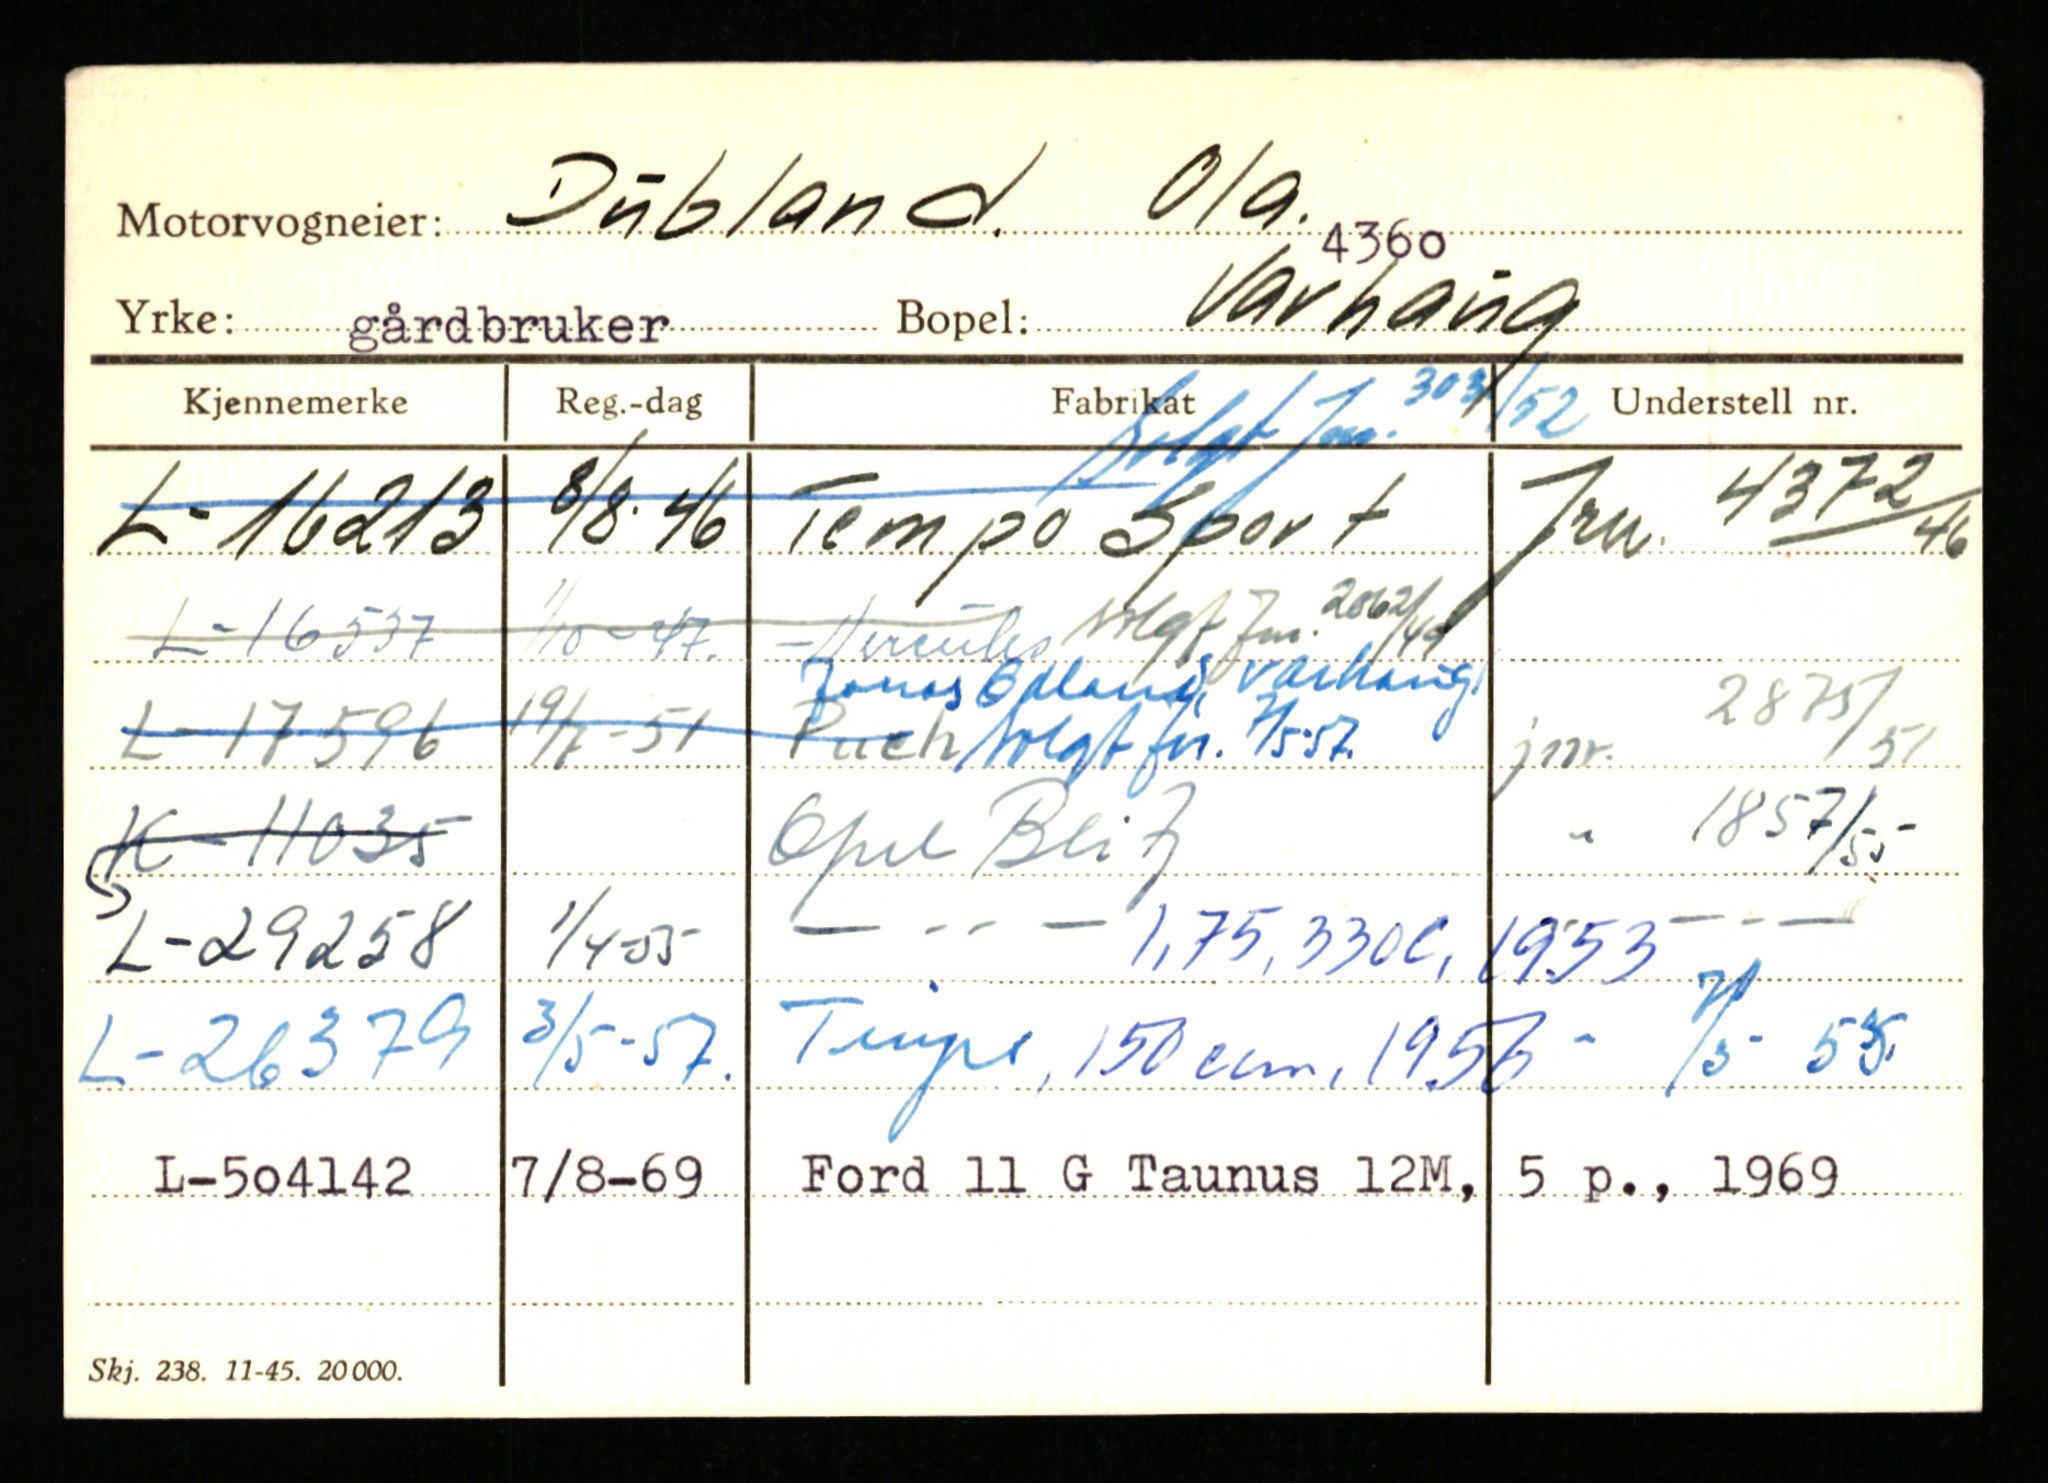 Motorvogneier: Dŭbland. Ola.
4360
Yrke: gårdbruker Bopel: Varhaŭg
Kjennemerke Reg.-dag Fabrikat Understell nr.
Solgt Jnr. 303/52
L-16213 8/8.46 Tempo Sport Jnr. 4372/46
L-16537 1/10-47. Hercules solgt Jnr. 2862/49
Jonas Ødland, Varhaug
L-17596 19/7-51 Puch solgt fr. 7/5-57. jnr. 2875/51
K-11035 Opel Blitz " 1857/55
L-29258 1/4-55 — - - — 1,75, 330C, 1953 — - —
L-26379 3/5-57. 150 ccm, 1956 - 7/5-
L-504142 7/8-69 Ford 11 G Taunus 12M, 5 p., 1969
Skj. 238. 11-45. 20000.